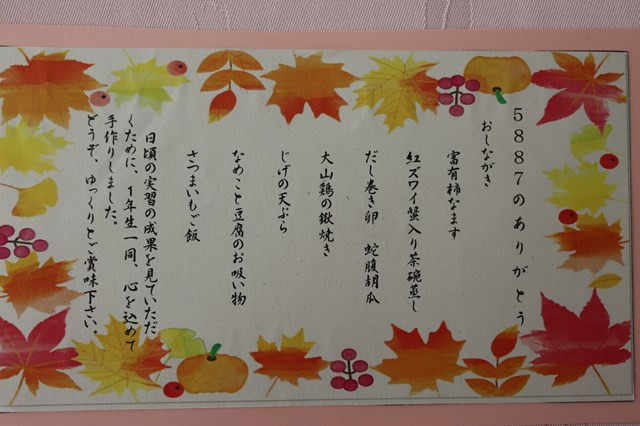 5887のありがとう
おしながき
富有柿なます
紅ズワイ蟹入り茶碗蒸し
だし巻き卵　蛇腹胡瓜
大山鶏の鍬焼き
じげの天ぷら
なめこと豆腐のお吸い物
さつまいもご飯
日頃の実習の成果を見ていただ
くために、1年生一同、心を込めて
手作りしました。
どうぞ、ゆっくりとご賞味下さい。